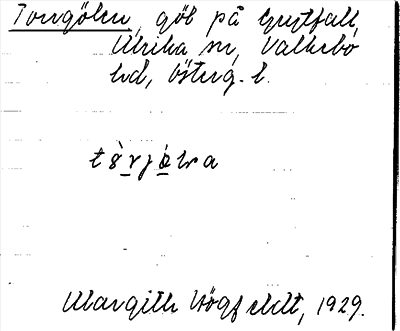 Torvgölen, göl på Grytfall,
Ulrika sn, Valkebo
hd, Österg. l.
Margith Högfeldt, 1929.